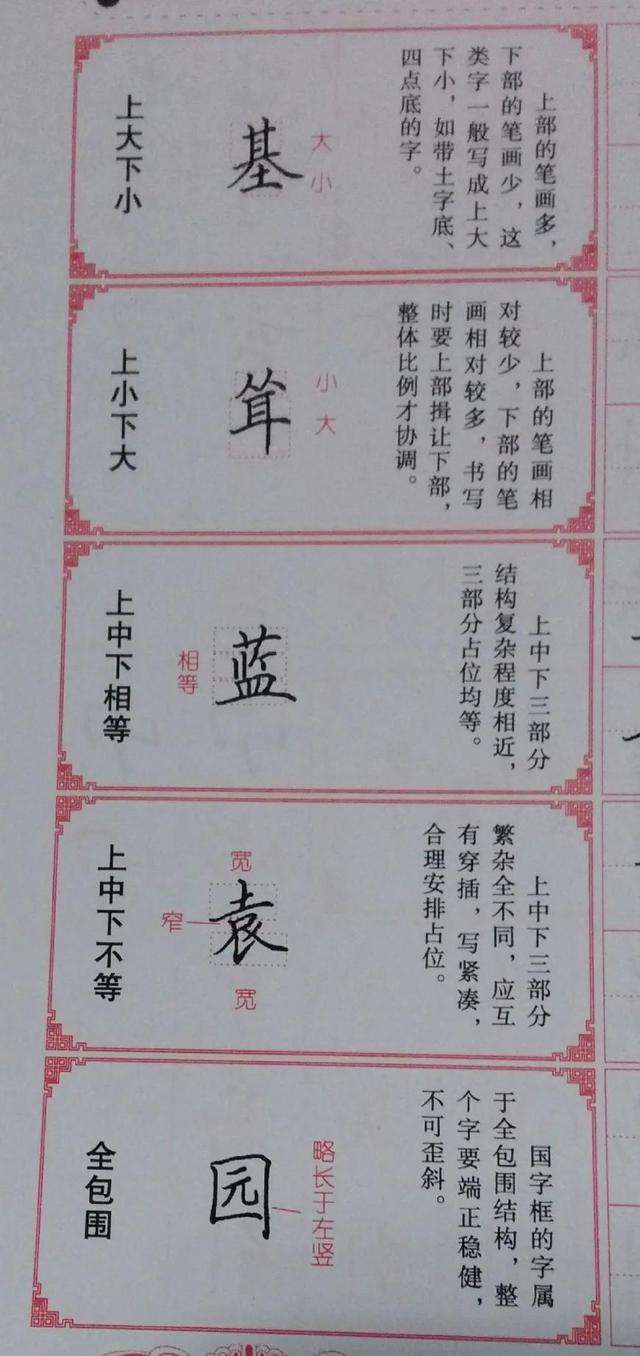 上大下小
基
大
小
上部的笔画多，
下部的笔画少，这
类字一般写成上大
下小，如带土字底、
四点底的字。
上小下大
笪
小
大
上部的笔画相
对较少，下部的笔
画相对较多，书写
时要上部揖让下部，
整体比例才协调。
上中下相等
相等
蓝
上中下三部分
结构复杂程度相近，
三部分占位均等。
上中下不等
宽
窄
袁
宽
上中下三部分
繁杂全不同，应互
有穿插，写紧凑，
合理安排占位。
全包围
园
略长于左竖
国字框的字属
于全包围结构，整
个字要端正稳健，
不可歪斜。